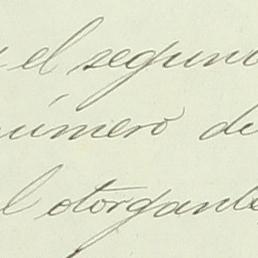 y el segund
número de
el otorgante